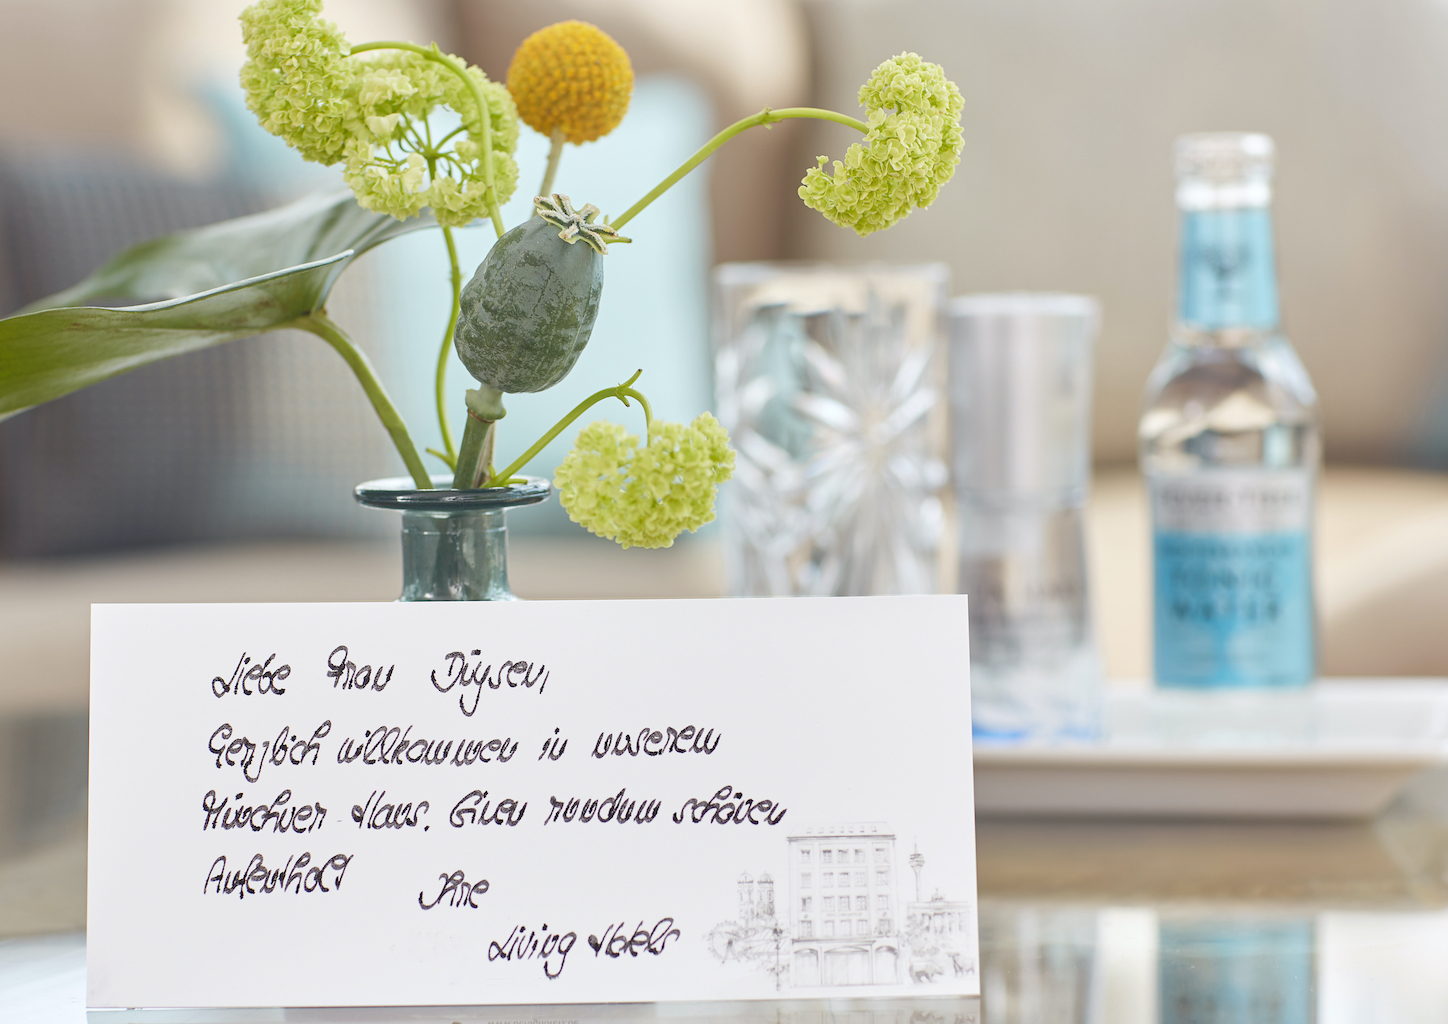 Liebe Frau Düysen,
Herzlich willkommen in unserem
Münchner Haus. Einen rundum schönen
Aufenthalt
Ihre
Living Hotels
TONIC
WATER